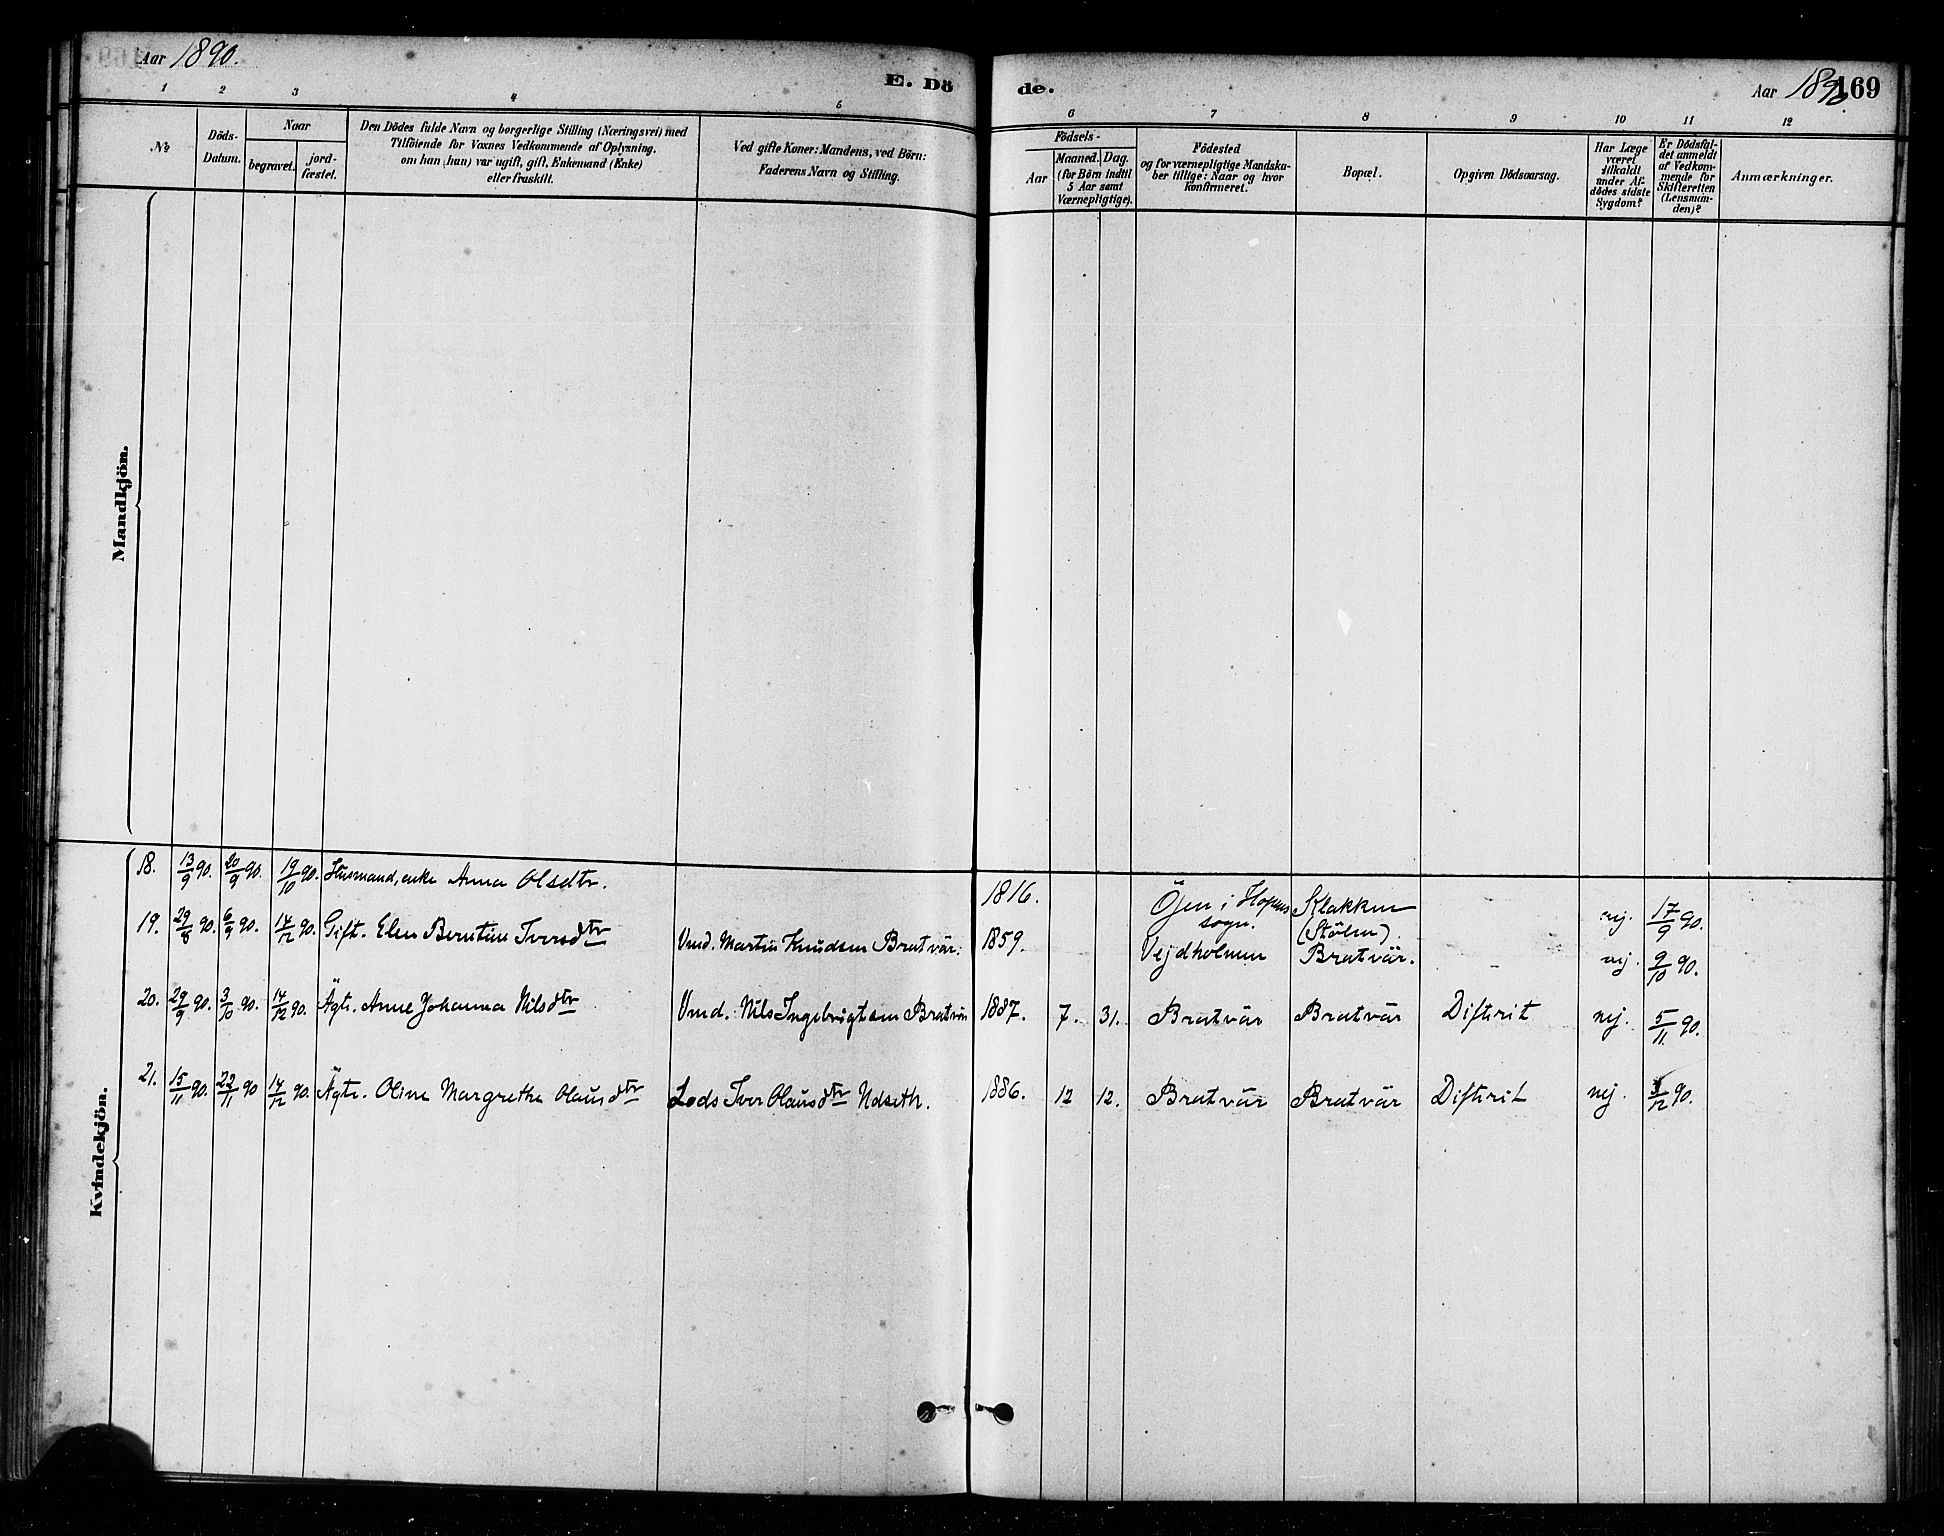 Aar 1890.
E. Dö
de.
Aar 1890.
169
1 2 3 4 5 6 7 8 9 10 11 12
No
Döds-
Datum.
Naar
begravet.
jord-
fæstet.
Den Dödes fulde Navn og borgerlige Stilling (Næringsvei) med
Tilföiende for Voxnes Vedkommende af Oplysning,
om han (hun) var ugift, gift, Enkemand (Enke)
eller fraskilt.
Ved gifte Koner: Mandens, ved Börn:
Faderens Navn og Stilling.
Födsels-
Aar
Maaned. Dag.
(for Börn indtil
5 Aar samt
Værnepligtige).
Födested
og for værnepligtige Mandska-
ber tillige: Naar og hvor
konfirmeret.
Bopæl.
Opgiven Dödsaarsag.
Har Læge
været
tilkaldt
under Af-
dödes sidste
Sygdom?
Er Dödsfal-
det anmeldt
af Vedkom-
mende for
Skifteretten
(Lensman-
den)?
Anmærkninger.
Mandkjön.
Kvindekjön.
18. 13/9 90. 20/9 90. 19/10 90. Husmand, enke Anna Olsdtr. 1816. Öjen i Hopens sogn. Klakken (Stölen). nej. 17/9 90.
19. 29/8 90. 6/9 90. 14/12 90. Gift. Elen Berntine Iversdtr Vmd. Martin Knudsen Bratvär. 1859. Vejdholmen Bratvär. nej. 9/10 90.
20. 29/9 90. 3/10 90. 14/12 90. Ägte. Anne Johanna Nilsdtr Vmd. Nils Ingebrigtsen Bratvär 1887. 7. 31. Bratvär Bratvär Diftirit nej. 5/11 90.
21. 15/11 90. 22/11 90 14/12 90. Ägte. Oline Margrethe Olausdtr Lods Iver Olausdtr Udseth. 1886. 12 12. Bratvär Bratvär Diftirit nej. 3/12 90.